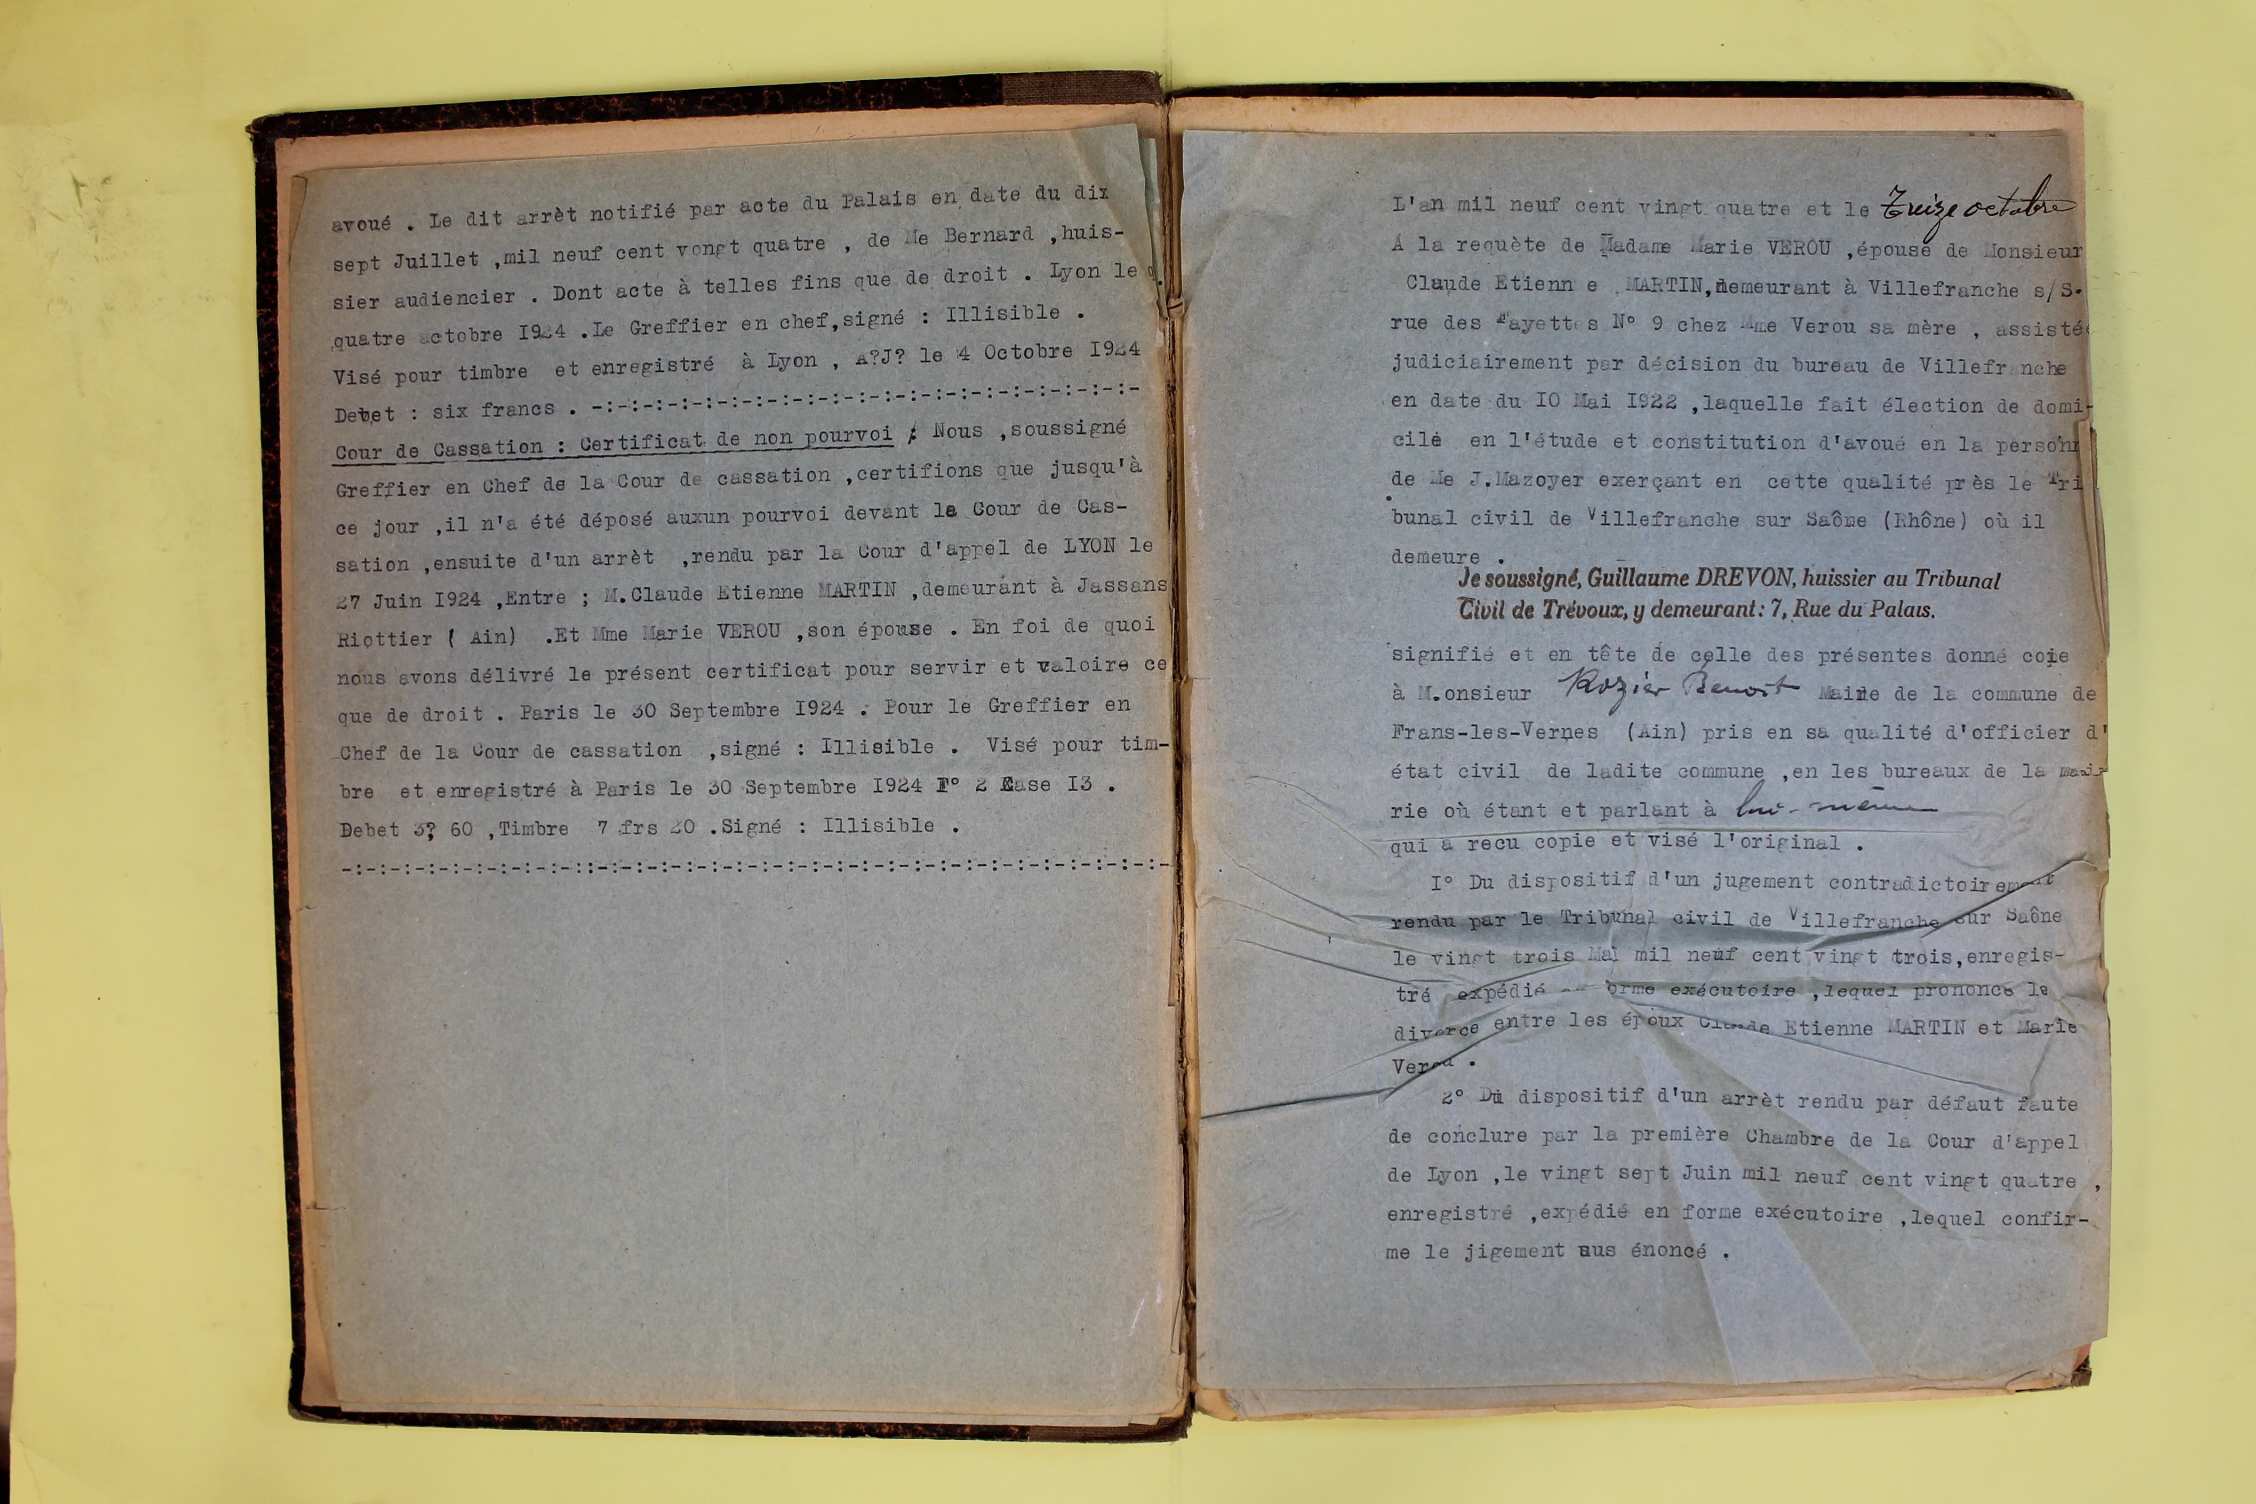 avoué . Le dit arrèt notifié par acte du Palais en date du dix
sept Juillet ,mil neuf cent vongt quatre , de Me Bernard ,huis-
sier audiencier . Dont acte à telles fins que de droit . Lyon le
quatre octobre I924 .Le Greffier en chef,signé : Illisible .
Visé pour timbre et enregistré à Lyon , A?J? le 4 Octobre I924
Debet : six francs . -:-:-:-:-:-:-:-:-:-:-:-:-:-:-:-:-:-:-:-:-:-:-
Cour de Cassation : Certificat de non pourvoi : Nous ,soussigné
Greffier en Chef de la Cour de cassation ,certifions que jusqu'à
ce jour ,il n'a été déposé auxun pourvoi devant la Cour de Cas-
sation ,ensuite d'un arrèt ,rendu par la Cour d'appel de LYON le
27 Juin I924 ,Entre ; M.Claude Etienne MARTIN ,demeurant à Jassans
Riottier ( Ain) .Et Mme Marie VEROU ,son épouse . En foi de quoi
nous avons délivré le présent certificat pour servir et valoire ce
que de droit . Paris le 30 Septembre I924 . Pour le Greffier en
Chef de la Cour de cassation ,signé : Illisible . Visé pour tim-
bre et enregistré à Paris le 30 Septembre I924 F° 2 Case I3 .
Debet 3? 60 ,Timbre 7 frs 20 .Signé : Illisible .
-:-:-:-:-:-:-:-:-:-::-:-:-:-:-:-:-:-:-:-:-:-:-:-:-:-:-:-:-:-:-:-:-:-
L'an mil neuf cent vingt quatre et le Treize octobre
A la requète de Madame Marie VEROU ,épouse de Monsieur
Claude Etienn e MARTIN,demeurant à Villefranche s/S.
rue des Fayettes N° 9 chez Mme Verou sa mère , assistée
judiciairement par décision du bureau de Villefranche
en date du IO Mai I922 ,laquelle fait élection de domi-
cile en l'étude et constitution d'avoué en la personn
de Me J.Mazoyer exerçant en cette qualité près le Tri
bunal civil de Villefranche sur Saône (Rhône) où il
demeure .
Je soussigné, Guillaume DREVON, huissier au Tribunal
Civil de Trévoux, y demeurant: 7, Rue du Palais.
signifié et en tête de celle des présentes donné coie
à M.onsieur Rozier Benoit Maire de la commune de
Frans-les-Vernes (Ain) pris en sa qualité d'officier d'
état civil de ladite commune ,en les bureaux de la mai-
rie où étant et parlant à lui-même
qui a recu copie et visé l'original .
I° Du dispositif d'un jugement contradictoirement
rendu par le Tribunal civil de Villefranche sur Saône
le vingt trois Mai mil neuf cent vingt trois,enregis-
tré expédié en forme exécutoire ,lequel prononce le
divorce entre les époux Claude Etienne MARTIN et Marie
Verou .
2° Du dispositif d'un arrèt rendu par défaut faute
de conclure par la première Chambre de la Cour d'appel
de Lyon ,le vingt sept Juin mil neuf cent vingt quatre ,
enregistré ,expédié en forme exécutoire ,lequel confir-
me le jigement sus énoncé .